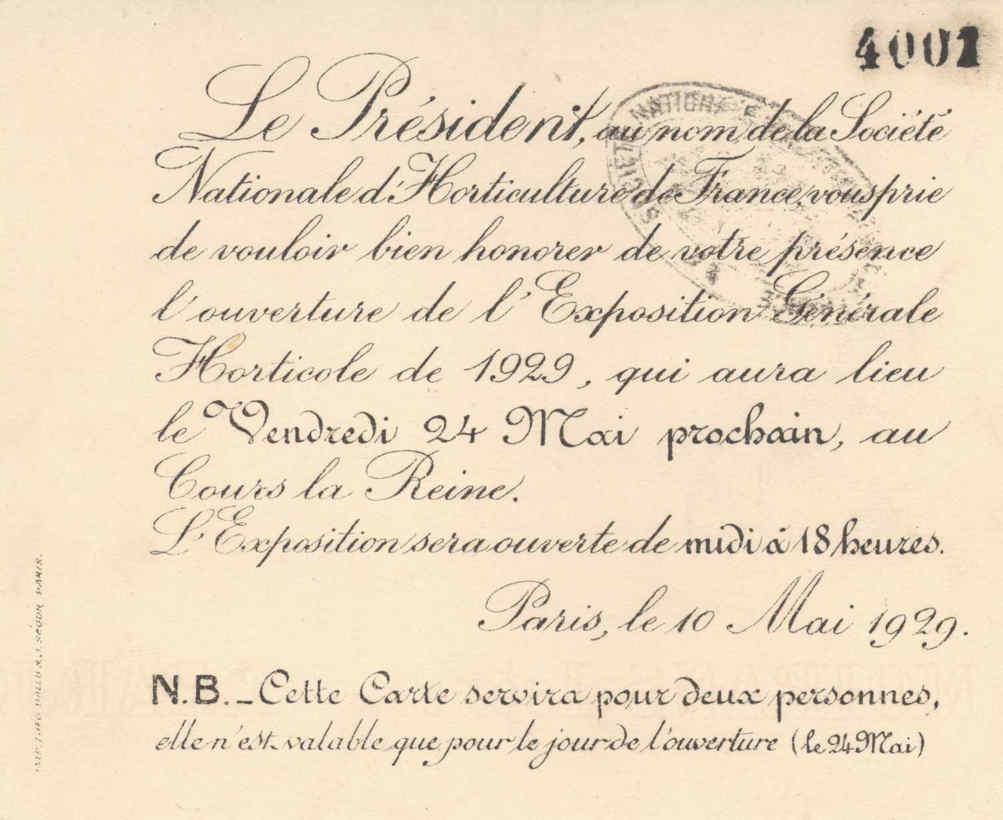 4001
Le Président, au nom de la Société
Nationale d'Horticulture de France, vous prie
de vouloir bien honorer de votre présence
l'ouverture de l'Exposition Générale
Horticole de 1929, qui aura lieu
le Vendredi 24 Mai prochain, au
Cours la Reine.
L'Exposition sera ouverte de midi à 18 heures.
Paris, le 10 Mai 1929.
N.B. _ Cette Carte servira pour deux personnes,
elle n'est valable que pour le jour de l'ouverture (le 24 Mai)
SOCIÉTÉ NATIONALE
PARIS